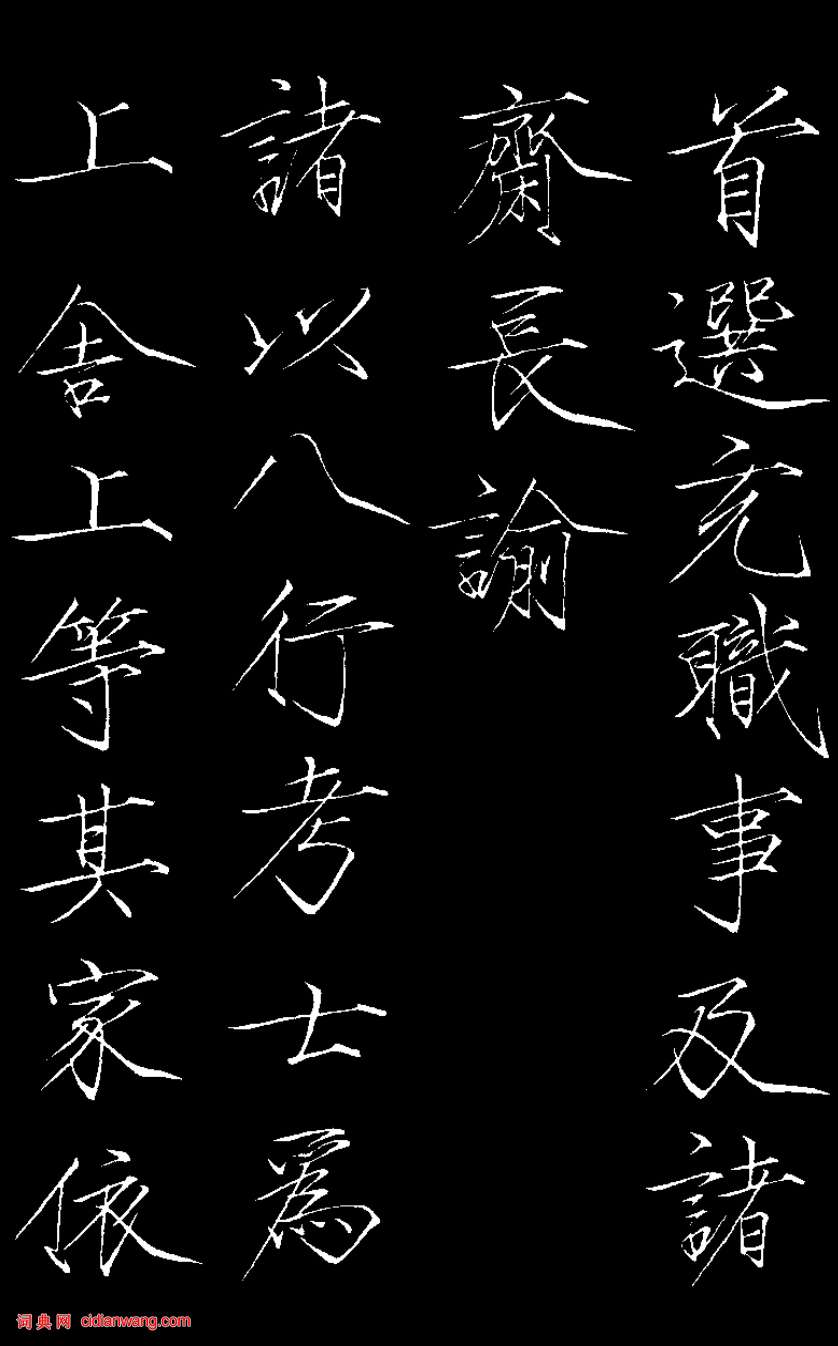 首選充職事及諸
齋長諭
諸以八行考士爲
上舍上等其家依
词典网 cidianwang.com